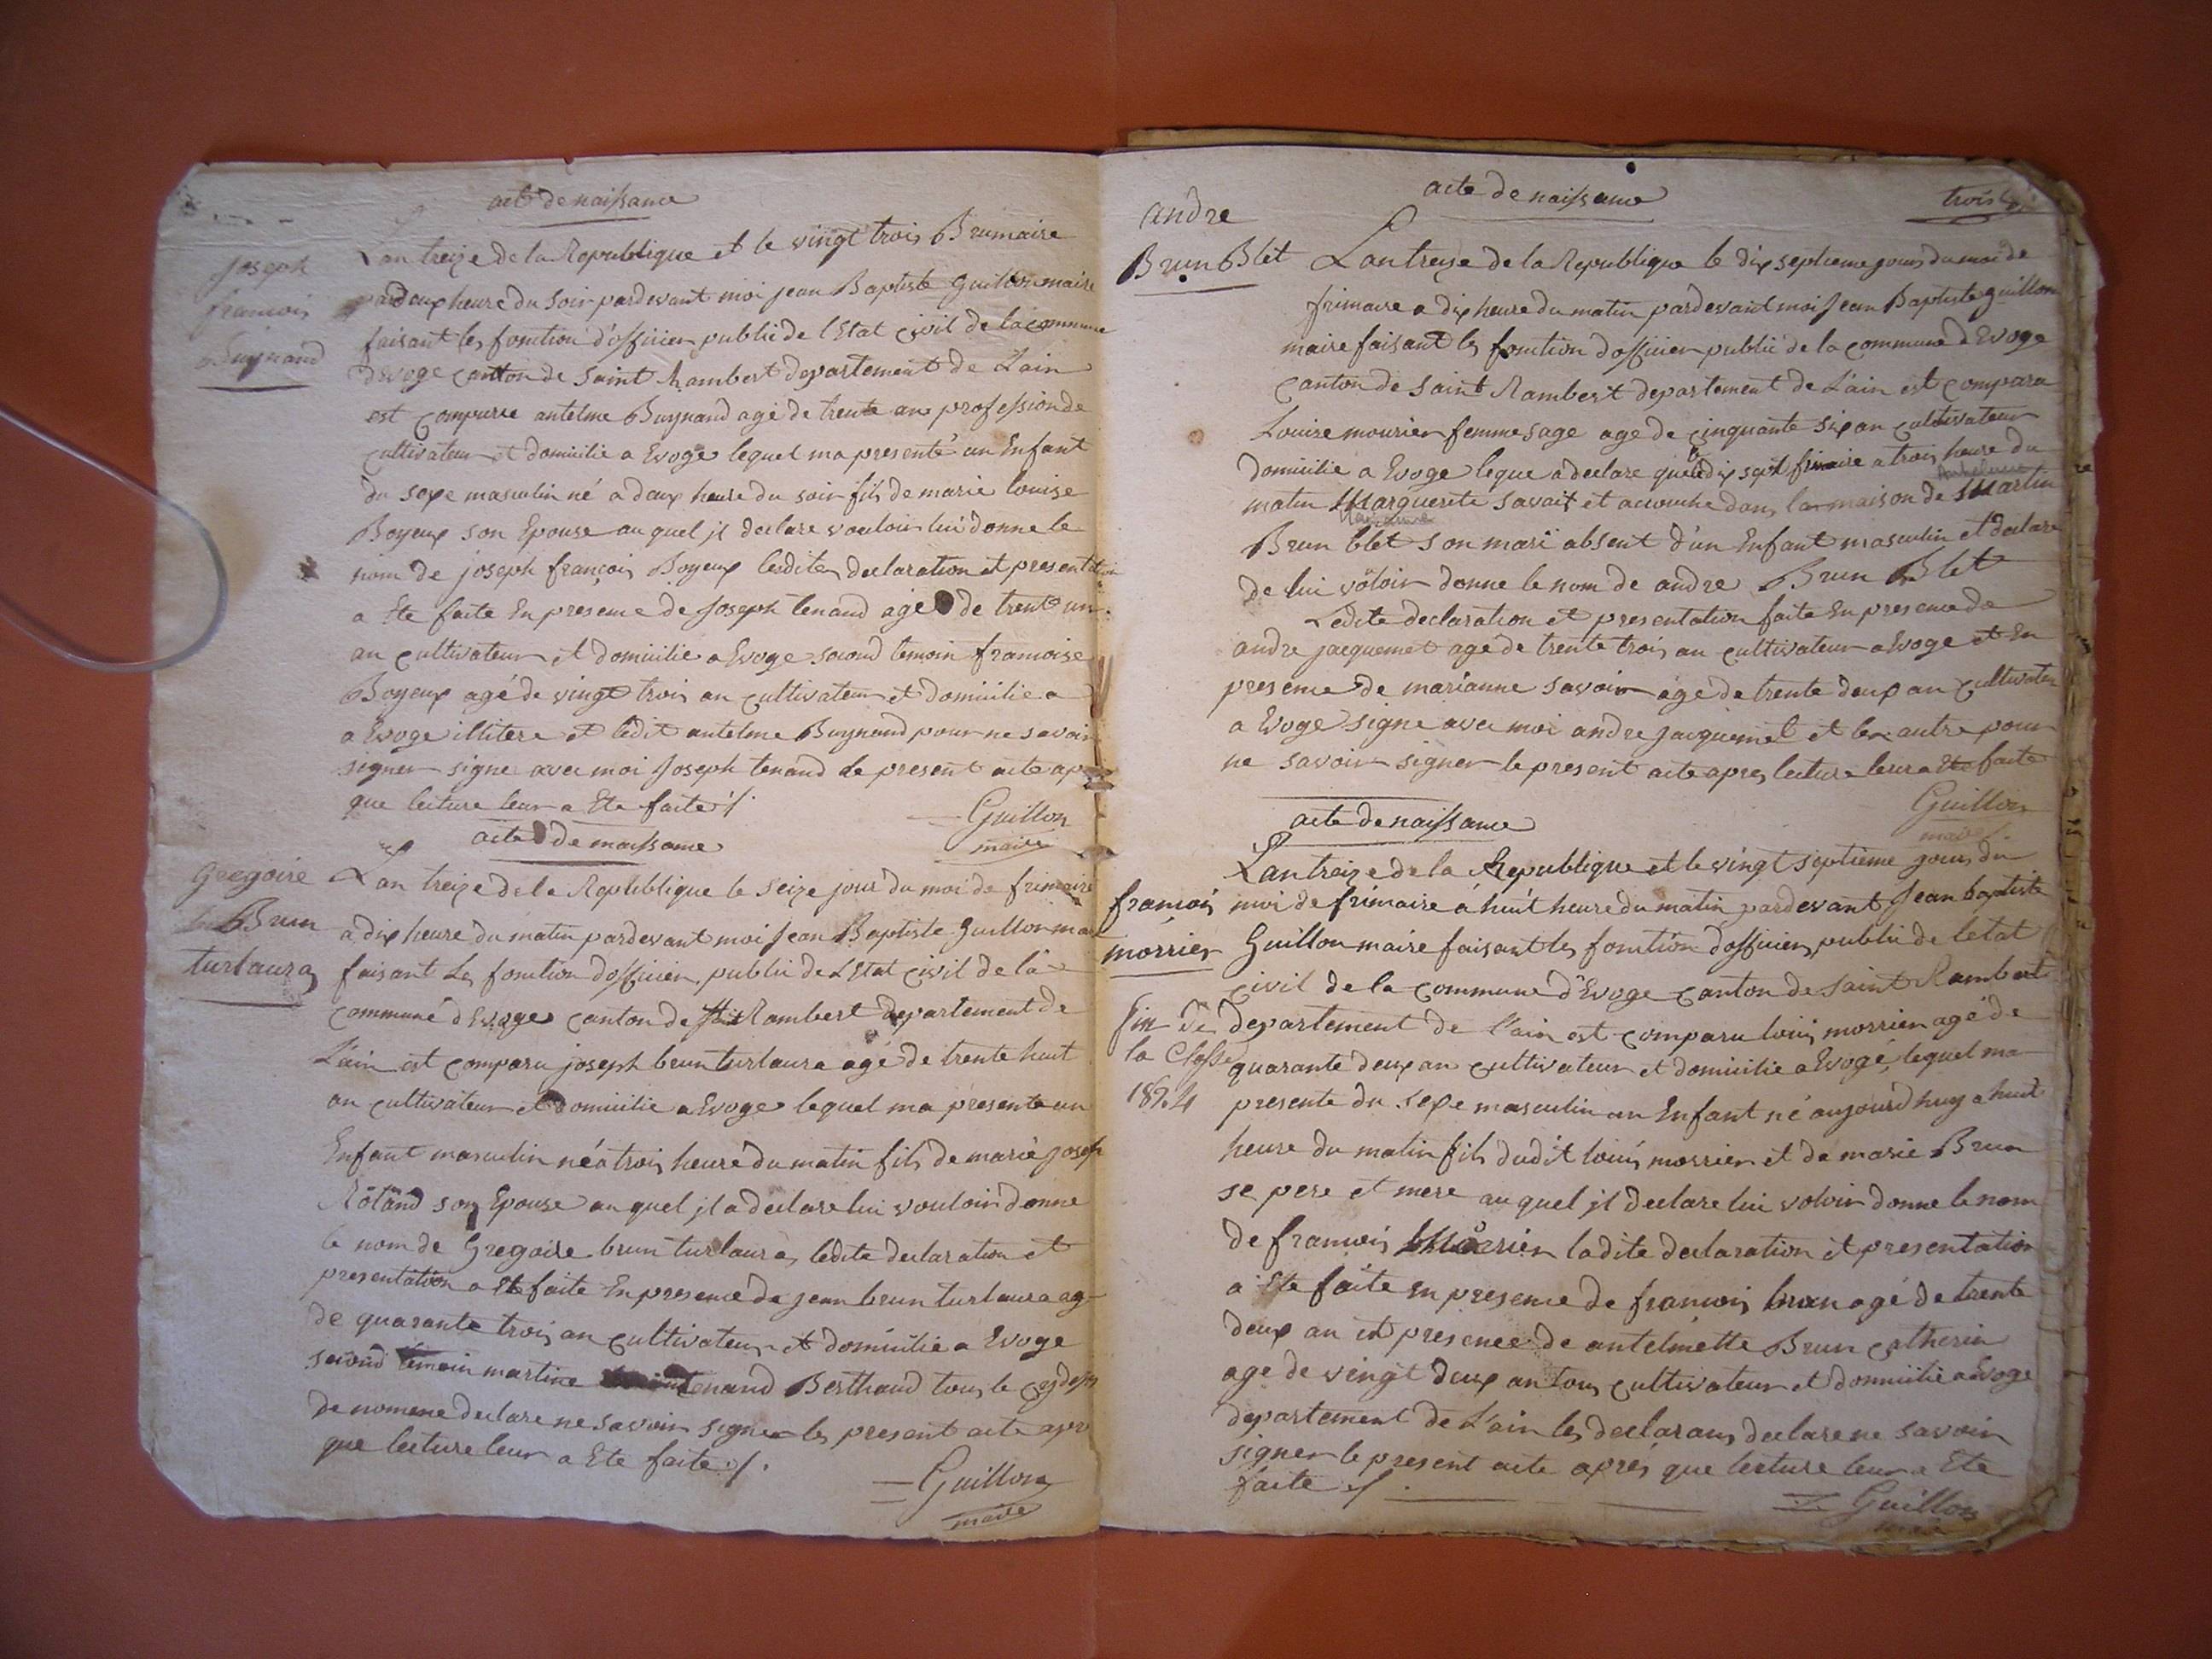 act de naissance
Joseph
francois
Buynand
Lan treize de la Republique et le vingt trois Brumaire
par deux heure du Soir pardevant moi jean Baptiste Guillon maire
faisant les fonction d'officier public de l'Etat civil de la commune
d'Evoge canton de Saint Rambert departement de L'ain
est comparue antelme Buynand agé de trente an profession de
cultivateur et domicilie a Evoge lequel ma presenté un Enfant
du sexe masculin né a deux heure du soir fils de marie louise
Boyeux son Epouse au quel il declare vouloir lui donne le
nom de joseph françois Boyeux lesdites declaration et presentation
a Ete faite En presence de Joseph tenand agé de trente un
an cultivateur et domicilie a Evoge second temoin francoise
Boyeux agé de vingt trois an cultivateur et domicilie a
a Evoge illitere et ledit antelme Buynand pour ne savoir
signer signe avec moi Joseph tenand le present acte ap
que lecture leur a Ete faite ./.
Guillon
maire
acte de naissance
Gregoire
Brun
turlaura
Lan treize de la Republique le seize jour du moi de frimaire
a dix heure du matin pardevant moi Jean Baptiste Guillon mai
faisant Les fonction d'officier public de L'Etat civil de la
commune d'Evoge canton de St Rambert departement de
L'ain est comparu joseph brun turlaura agé de trente huit
an cultivateur et domicilie a Evoge lequel ma presente un
Enfant masculin né a trois heure du matin fils de marie joseph
Rôland son Epouse au quel jl a declare lui vouloir donne
le nom de Gregoire brun turlaura, ledite declaration et
presentation a Ete faite En presence de jean brun turlaura ag
de quarante trois an cultivateur et domicilie a Evoge
second temoin martine tenand Berthaud tous le cy desus
de nomene declare ne savoir signer les present acte apre
que lecture leur a Ete faite ./.
Guillon
maire
acte de naissance
trois
andre
Brun Blet
Lan treize de la Republique le dix septieme jours du moi de
frimaire a dix heure du matin pardevant moi Jean Baptiste Guillon
maire faisant les fonction d'officier public de la commune d'Evoge
canton de saint Rambert departement de L'ain est compara
Louise mourier femme sage age de cinquante six an cultivateur
domicilie a Evoge leque a declare que le dix sept frimaire a trois heure du
Anthelme
matin Marguerite Savait et accouche dans la maison de Martin
Marianne
Brun blet son mari absent d'un Enfant masculin et declare
de lui voloir donne le nom de andre Brun Blet
Ledite declaration et presentation faite En presence de
andre jacquemet agé de trente trois an cultivateur a Evoge et En
presence de marianne savoir agé de trente deux an cultivateur
a Evoge signe avec moi andre jacquemet et les autre pour
ne savoir signer le present acte apres lecture leur a Ete faite
Guillon
maire
acte de naissance
francois
morrier
fin de
la Classe
1824
Lan treize de la Republique et le vingt septieme jours du
moi de frimaire a huit heure du matin pardevant Jean baptiste
Guillon maire faisant les fonction d'officier public de letat
civil de la commune d'Evoge canton de saint Rambert
departement de l'ain est comparu louis morrier agé de
quarante deux an cultivateur et domicilie a Evoge, lequel ma
presente du sexe masculin un Enfant né aujourd'huy a huit
heure du matin fils dudit louis morrier et de marie Brun
se pere et mere au quel jl declare lui voloir donne le nom
de francois Morrier ladite declaration et presentation
a Ete faite En presence de francois brun agé de trente
deux an et presence de antelmette Brun catherin
age de vingt deux an tous cultivateur et domicilie a Evoge
departement de L'ain les declarans declare ne savoir
signer le present acte aprés que lecture leur a Ete
faite ./.
Guillon